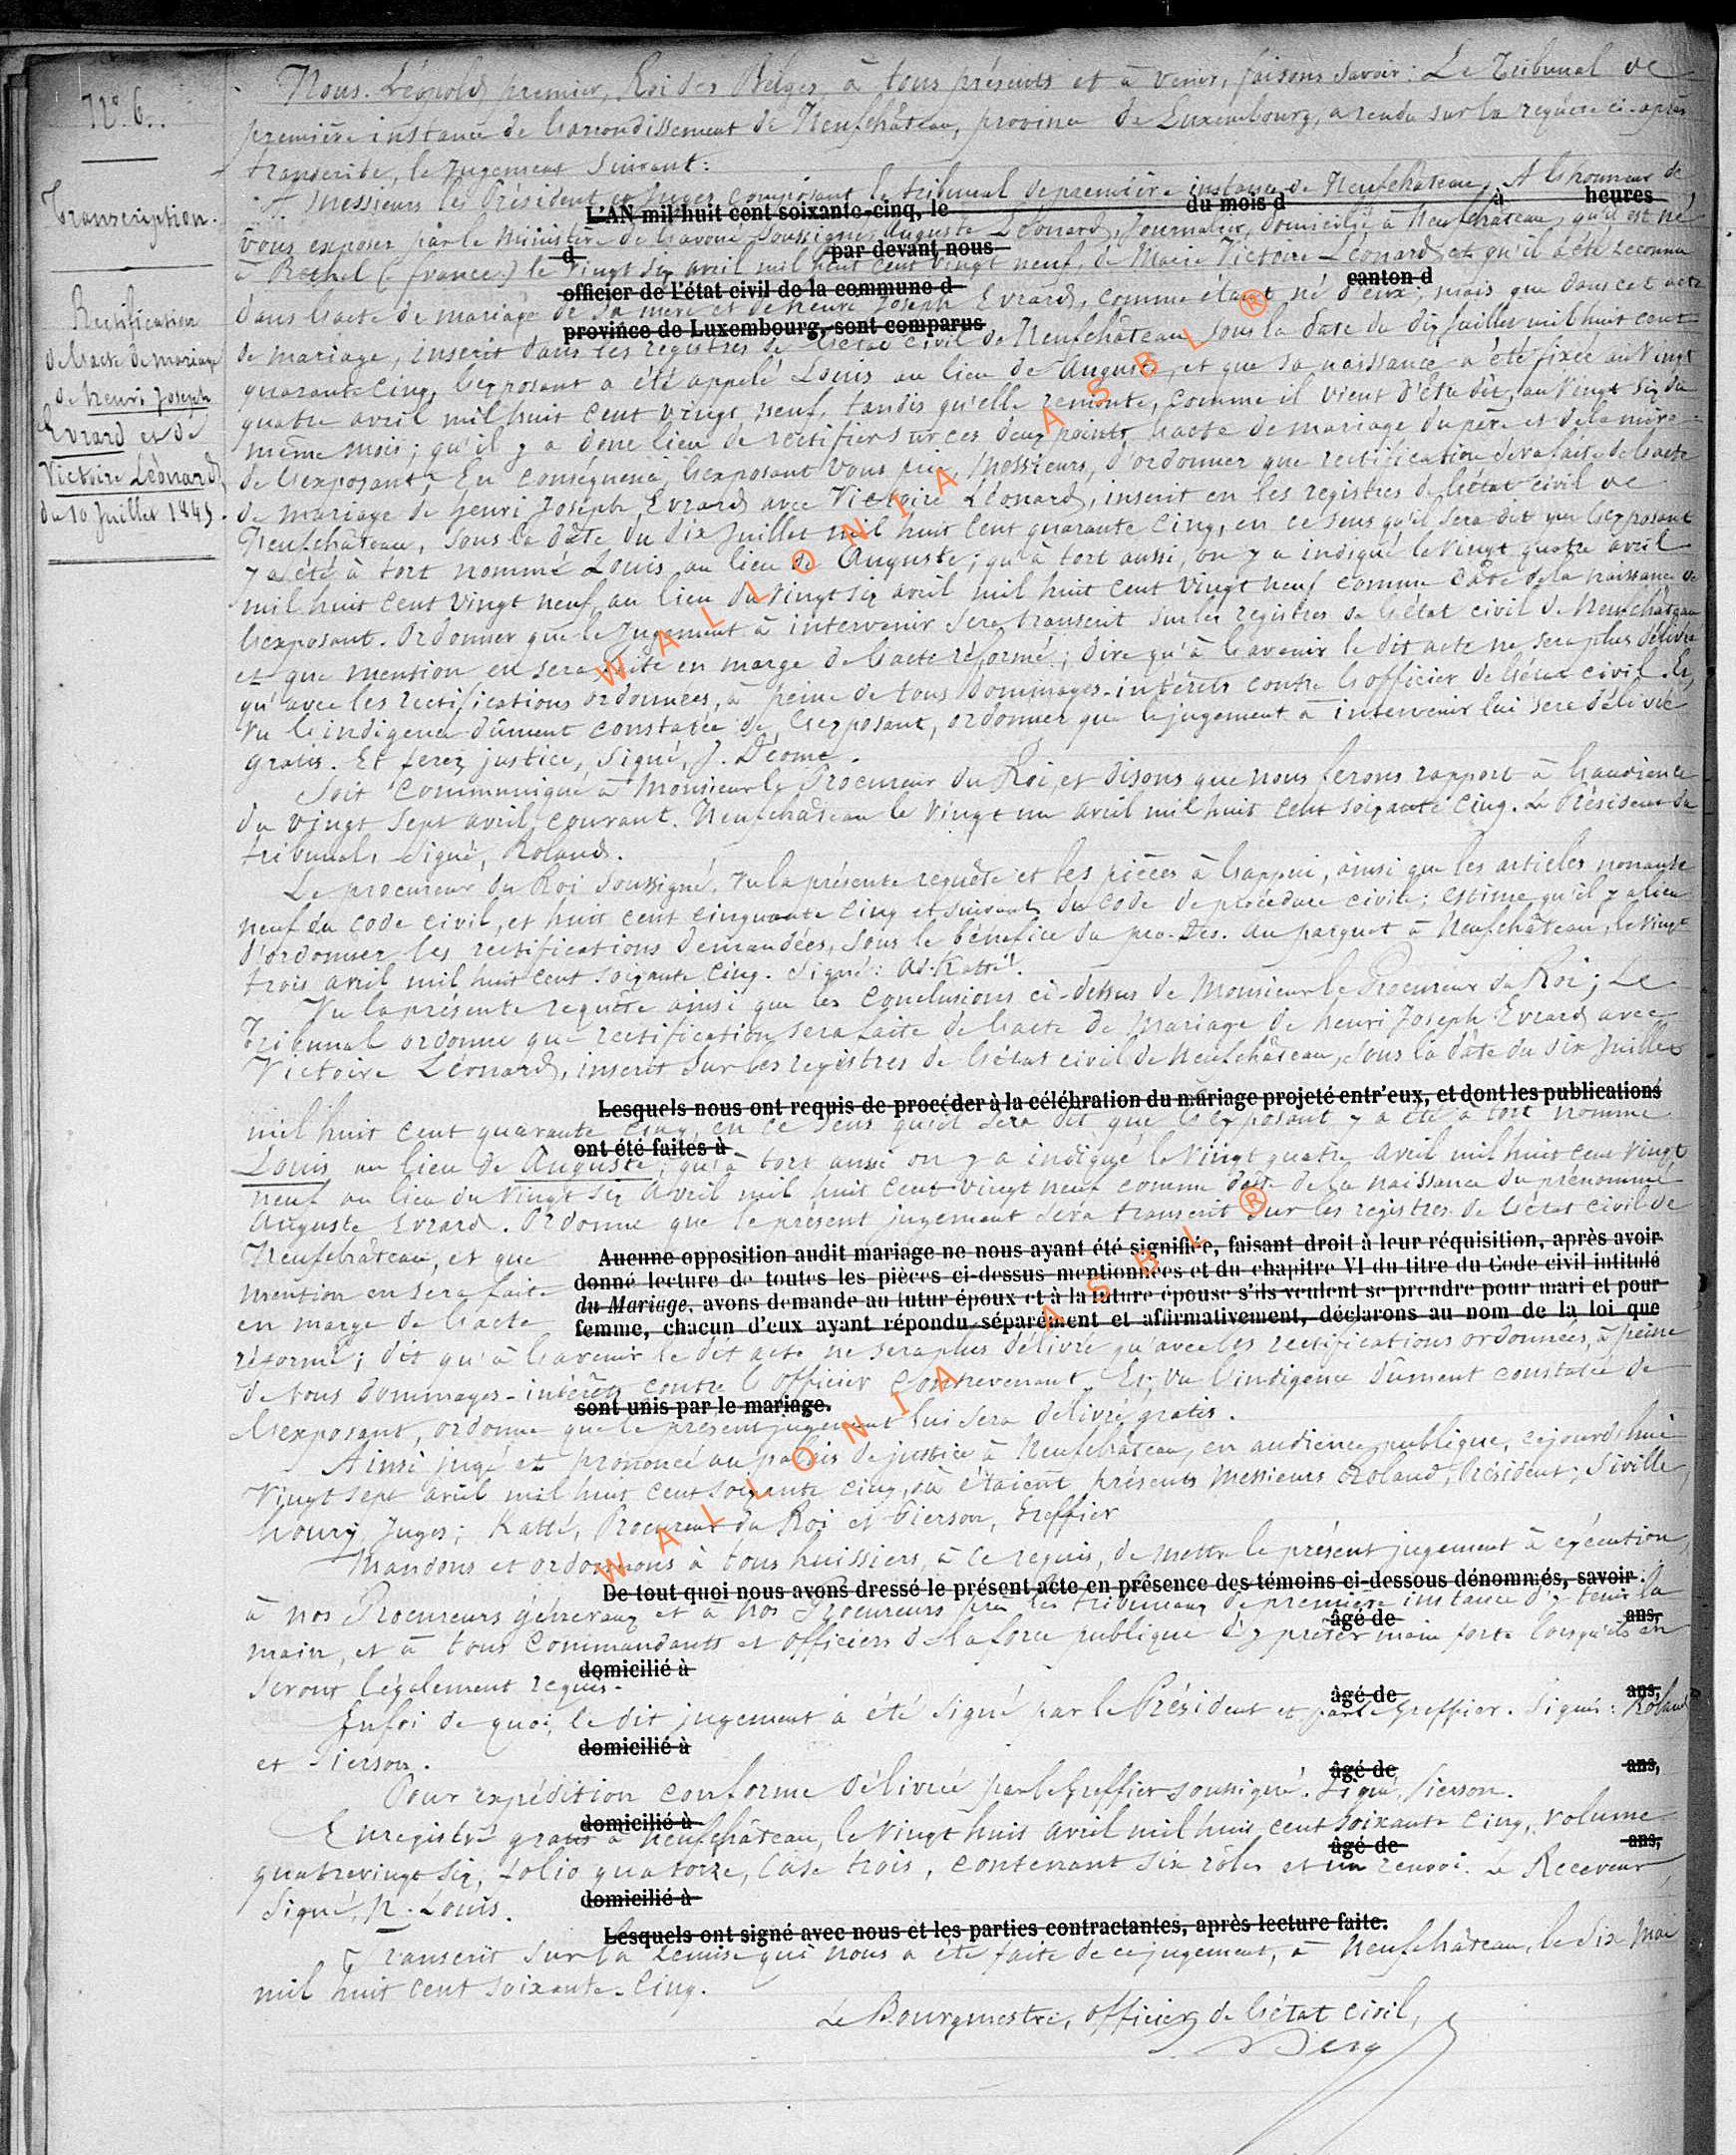 N° 6.
Transcription.
Rectification
de l'acte de mariage
de henri Joseph
Evrard et de
Victoire Léonard
du 10 Juillet 1845.
Nous. Léopold premier, Roi des Belges, à tous présents et à venir, faisons savoir: Le Tribunal de
première instance de l'arrondissement de Neufchâteau, province de Luxembourg, a rendu sur la requête ci-après
transcrite, le Jugement suivant:
A Messieurs les Président et Juges composant le tribunal de première instance de Neufchâteau, A l'honneur de
L'AN mil huit cent soixante-cinq, le du mois d à heures
vous exposer par le Ministère de l'avoué soussigné, Auguste Léonard, Journalier, domicilié à Neufchâteau, qu'il est né
d par devant nous
à Rethel (france) le vingt six avril mil huit cent vingt neuf, de Marie Victoire Léonard, et qu'il a été reconnu
officier de l'état civil de la commune d canton d
dans l'acte de mariage de sa mère et de henri Joseph Evrard, comme étant né d'eux; mais que dans cet acte
province de Luxembourg, sont comparus
de mariage, inscrit dans les registres de l'état civil de Neufchâteau sous la date du dix Juillet mil huit cent
quarante cinq, l'exposant a été appelé Louis au lieu de Auguste, et que sa naissance a été fixée au vingt
quatre avril mil huit cent vingt neuf, tandis qu'elle remonte, comme il vient d'être dit, au vingt six du
même mois; qu'il y a donc lieu de rectifier sur ces deux points l'acte de mariage du père et de la mère
de l'exposant. En conséquence, l'exposant vous prie, Messieurs, d'ordonner que rectification sera faite de l'acte
de mariage de henri Joseph Evrard avec Victoire Léonard, inscrit en les registres de l'état civil de
Neufchâteau, sous la date du dix Juillet mil huit cent quarante cinq, en ce sens qu'il sera dit que l'exposant
y a été à tort nommé Louis au lieu de Auguste; qu'à tort aussi, on y a indiqué le vingt quatre avril
mil huit cent vingt neuf, au lieu du vingt six avril mil huit cent vingt neuf comme date de la naissance de
l'exposant. Ordonner que le Jugement à intervenir sera transcrit sur les registres de l'état civil de Neufchâteau
et que mention en sera faite en marge de l'acte réformé; dire qu'à l'avenir le dit acte ne sera plus délivré
qu'avec les rectifications ordonnées, à peine de tous dommages-intérêts contre l'officier de l'état civil. Et,
Vu l'indigence dûment constatée de l'exposant, ordonner que le jugement à intervenir lui sera délivré
gratis. Et ferez justice, signé, J. Déome.
Soit communiqué à Monsieur le Procureur du Roi, et disons que nous ferons rapport à l'audience
du vingt sept avril courant. Neufchâteau le vingt un avril mil huit cent soixante cinq. Le Président du
tribunal, signé, Roland.
Le procureur du Roi soussigné, Vu la présente requête et les pièces à l'appui, ainsi que les articles nonante
neuf du code civil, et huit cent cinquante cinq et suivants du code de procédure civile; estime qu'il y a lieu
d'ordonner les rectifications demandées, sous le bénéfice du pro-Deo. Au parquet à Neufchâteau, le vingt
trois avril mil huit cent soixante cinq. Signé: Ad. Katté.
Vu la présente requête ainsi que les conclusions ci-dessus de Monsieur le Procureur du Roi; Le
Tribunal ordonne que rectification sera faite de l'acte de Mariage de henri Joseph Evrard avec
Victoire Léonard, inscrit sur les registres de l'état civil de Neufchâteau, sous la date du dix Juillet
Lesquels nous ont requis de procéder à la célébration du mariage projeté entr'eux, et dont les publications
mil huit cent quarante cinq, en ce sens qu'il sera dit que l'exposant y a été à tort nommé
ont été faites à
Louis au lieu de Auguste; qu'à tort aussi on y a indiqué le vingt quatre avril mil huit cent vingt
neuf au lieu du vingt six avril mil huit cent vingt neuf comme date de la naissance du prénommé
Auguste Evrard. Ordonne que le présent jugement sera transcrit sur les registres de l'état civil de
Neufchâteau, et que
mention en sera faite
en marge de l'acte
Aucune opposition audit mariage ne nous ayant été signifiée, faisant droit à leur réquisition, après avoir
donné lecture de toutes les pièces ci-dessus mentionnées et du chapitre VI du titre du Code civil intitulé
du Mariage, avons demandé au futur époux et à la future épouse s'ils veulent se prendre pour mari et pour
femme, chacun d'eux ayant répondu séparément et affirmativement, déclarons au nom de la loi que
réformé; dit qu'à l'avenir le dit acte ne sera plus délivré qu'avec les rectifications ordonnées, à peine
de tous dommages-intérêts contre l'officier contrevenant. Et, vu l'indigence dûment constatée de
sont unis par le mariage.
l'exposant, ordonne que le présent jugement lui sera délivré gratis.
Ainsi jugé et prononcé au palais de justice à Neufchâteau, en audience publique, ce jourd'hui
vingt sept avril mil huit cent soixante cinq, où étaient présents Messieurs Roland, Président; Siville,
houry Juges; Katté, Procureur du Roi et Pierson, Greffier
Mandons et ordonnons à tous huissiers, à ce requis, de mettre le présent jugement à exécution,
De tout quoi nous avons dressé le présent acte en présence des témoins ci-dessous dénommés, savoir
à nos Procureurs généraux et à nos Procureurs près les tribunaux de première instance d'y tenir la
âgé de ans,
main, et à tous commandants et officiers de la force publique d'y prêter main forte lorsqu'ils en
domicilié à
seront légalement requis.
âgé de ans,
En foi de quoi, le dit jugement a été signé par le Président et par le Greffier. Signés: Roland
domicilié à
et Pierson.
âgé de ans,
Pour expédition conforme délivrée par le Greffier soussigné. Signé, Pierson.
domicilié à
Enregistré gratis à Neufchâteau, le vingt huit avril mil huit cent soixante cinq, volume
âgé de ans,
quatrevingt six, folio quatorze, case trois, contenant six rôles et un renvoi. Le Receveur,
domicilié à
Signé, N. Louis.
Lesquels ont signé avec nous et les parties contractantes, après lecture faite.
Transcrit sur la remise qui nous a été faite de ce jugement, à Neufchâteau, le dix Mai
mil huit cent soixante-cinq.
Le Bourgmestre, officier de l'état civil,
WALLONIA ASBL ®
WALLONIA ASBL ®